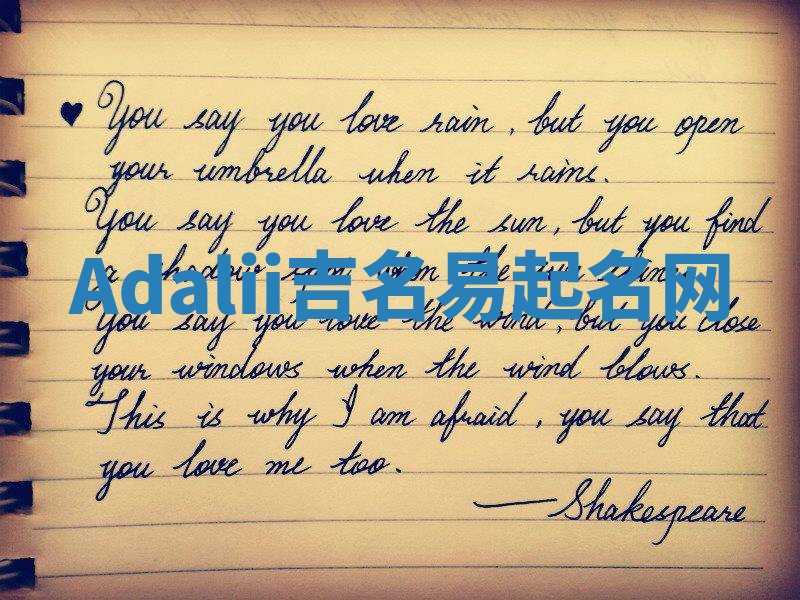 You say you love rain, but you open
your umbrella when it rains.
You say you love the sun, but you find
a shadow when the sun shines.
Adalii吉名易起名网
You say you love the wind, but you close
your windows when the wind blows.
This is why I am afraid, you say that
you love me too.
—Shakespeare